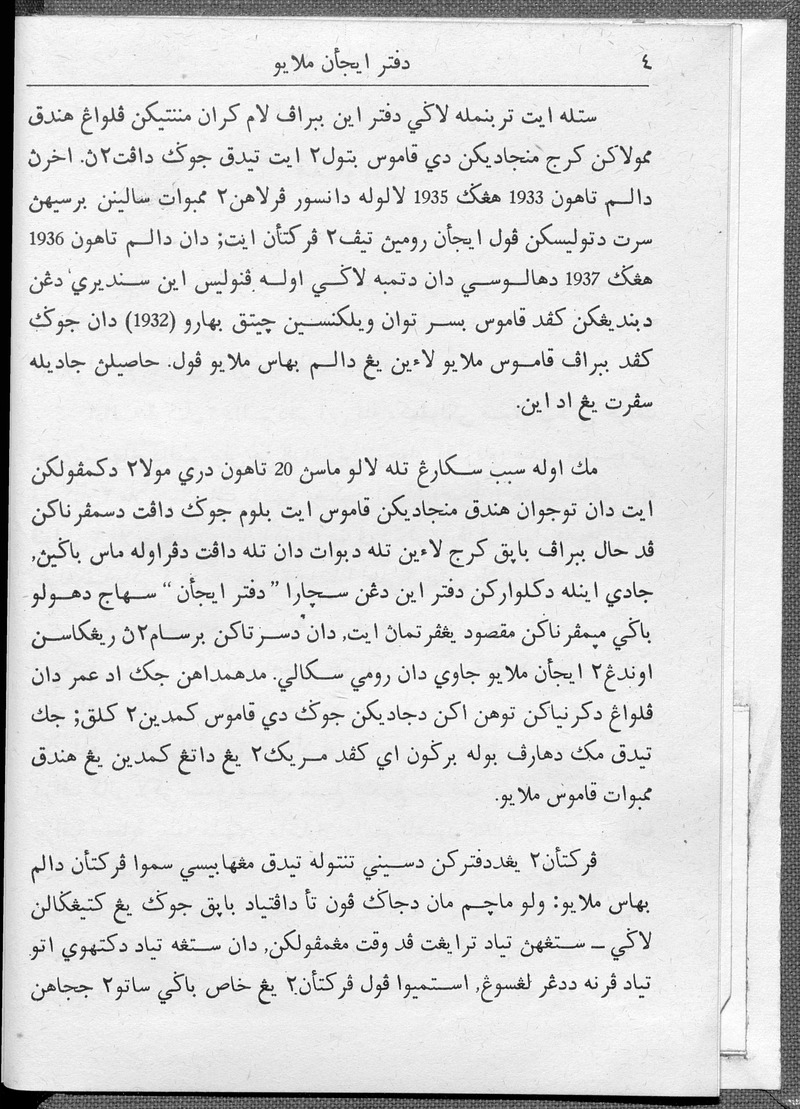 ٤
دفتر ايجأن ملايو
ستله ايت تربنمله لاݢي دفتر اين ببراڤ لام كران مننتيكن ڤلواڠ هندق
ممولاكن كرج منجاديكن دي قاموس بتول٢ ايت تيدق جوݢ داڤت٢ڽ. اخرڽ
دالم تاهون 1933 هڠݢ 1935 لالوله دانسور ڤرلاهن٢ ممبوات سالينن برسيهڽ
سرت دتوليسكن ڤول ايجأن روميڽ تيڤ٢ ڤركتأن ايت; دان دالم تاهون 1936
هڠݢ 1937 دهالوسي دان دتمبه لاݢي اوله ڤنوليس اين سنديري دڠن
دبنديڠكن كڤد قاموس بسر توان ويلكنسين چيتق بهارو (1932) دان جوݢ
كڤد ببراڤ قاموس ملايو لاءين يڠ دالم بهاس ملايو ڤول. حاصيلڽ جاديله
سڤرت يڠ اد اين.
مك اوله سبب سكارڠ تله لالو ماسڽ 20 تاهون دري مولا٢ دكمڤولكن
ايت دان توجوان هندق منجاديكن قاموس ايت بلوم جوݢ داڤت دسمڤرناكن
ڤد حال ببراڤ باڽق كرج لاءين تله دبوات دان تله داڤت دڤراوله ماس باݢيڽ,
جادي اينله دكلواركن دفتر اين دڠن سچارا ” دفتر ايجأن “ سهاج دهولو
باݢي ميمڤرناكن مقصود يڠڤرتمان ايت, دان دسرتاكن برسام٢ڽ ريڠكاسن
اوندڠ٢ ايجأن ملايو جاوي دان رومي سكالي. مدهمداهن جك اد عمر دان
ڤلواڠ دكرنياكن توهن اكن دجاديكن جوݢ دي قاموس كمدين٢ كلق; جك
تيدق مك دهارڤ بوله برݢون اي كڤد مريك٢ يڠ داتڠ كمدين يڠ هندق
ممبوات قاموس ملايو.
ڤركتأن٢ يڠددفتركن دسيني تنتوله تيدق مڠهابيسي سموا ڤركتأن دالم
بهاس ملايو: ولو ماچم مان دجاݢ ڤون تأ داڤتياد باڽق جوݢ يڠ كتيڠݢالن
لاݢي ــ ستڠهڽ تياد ترايڠت ڤد وقت مڠمڤولكن, دان ستڠه تياد دكتهوي اتو
تياد ڤرنه ددڠر لڠسوڠ, استميوا ڤول ڤركتأن٢ يڠ خاص باݢي ساتو٢ ججاهن